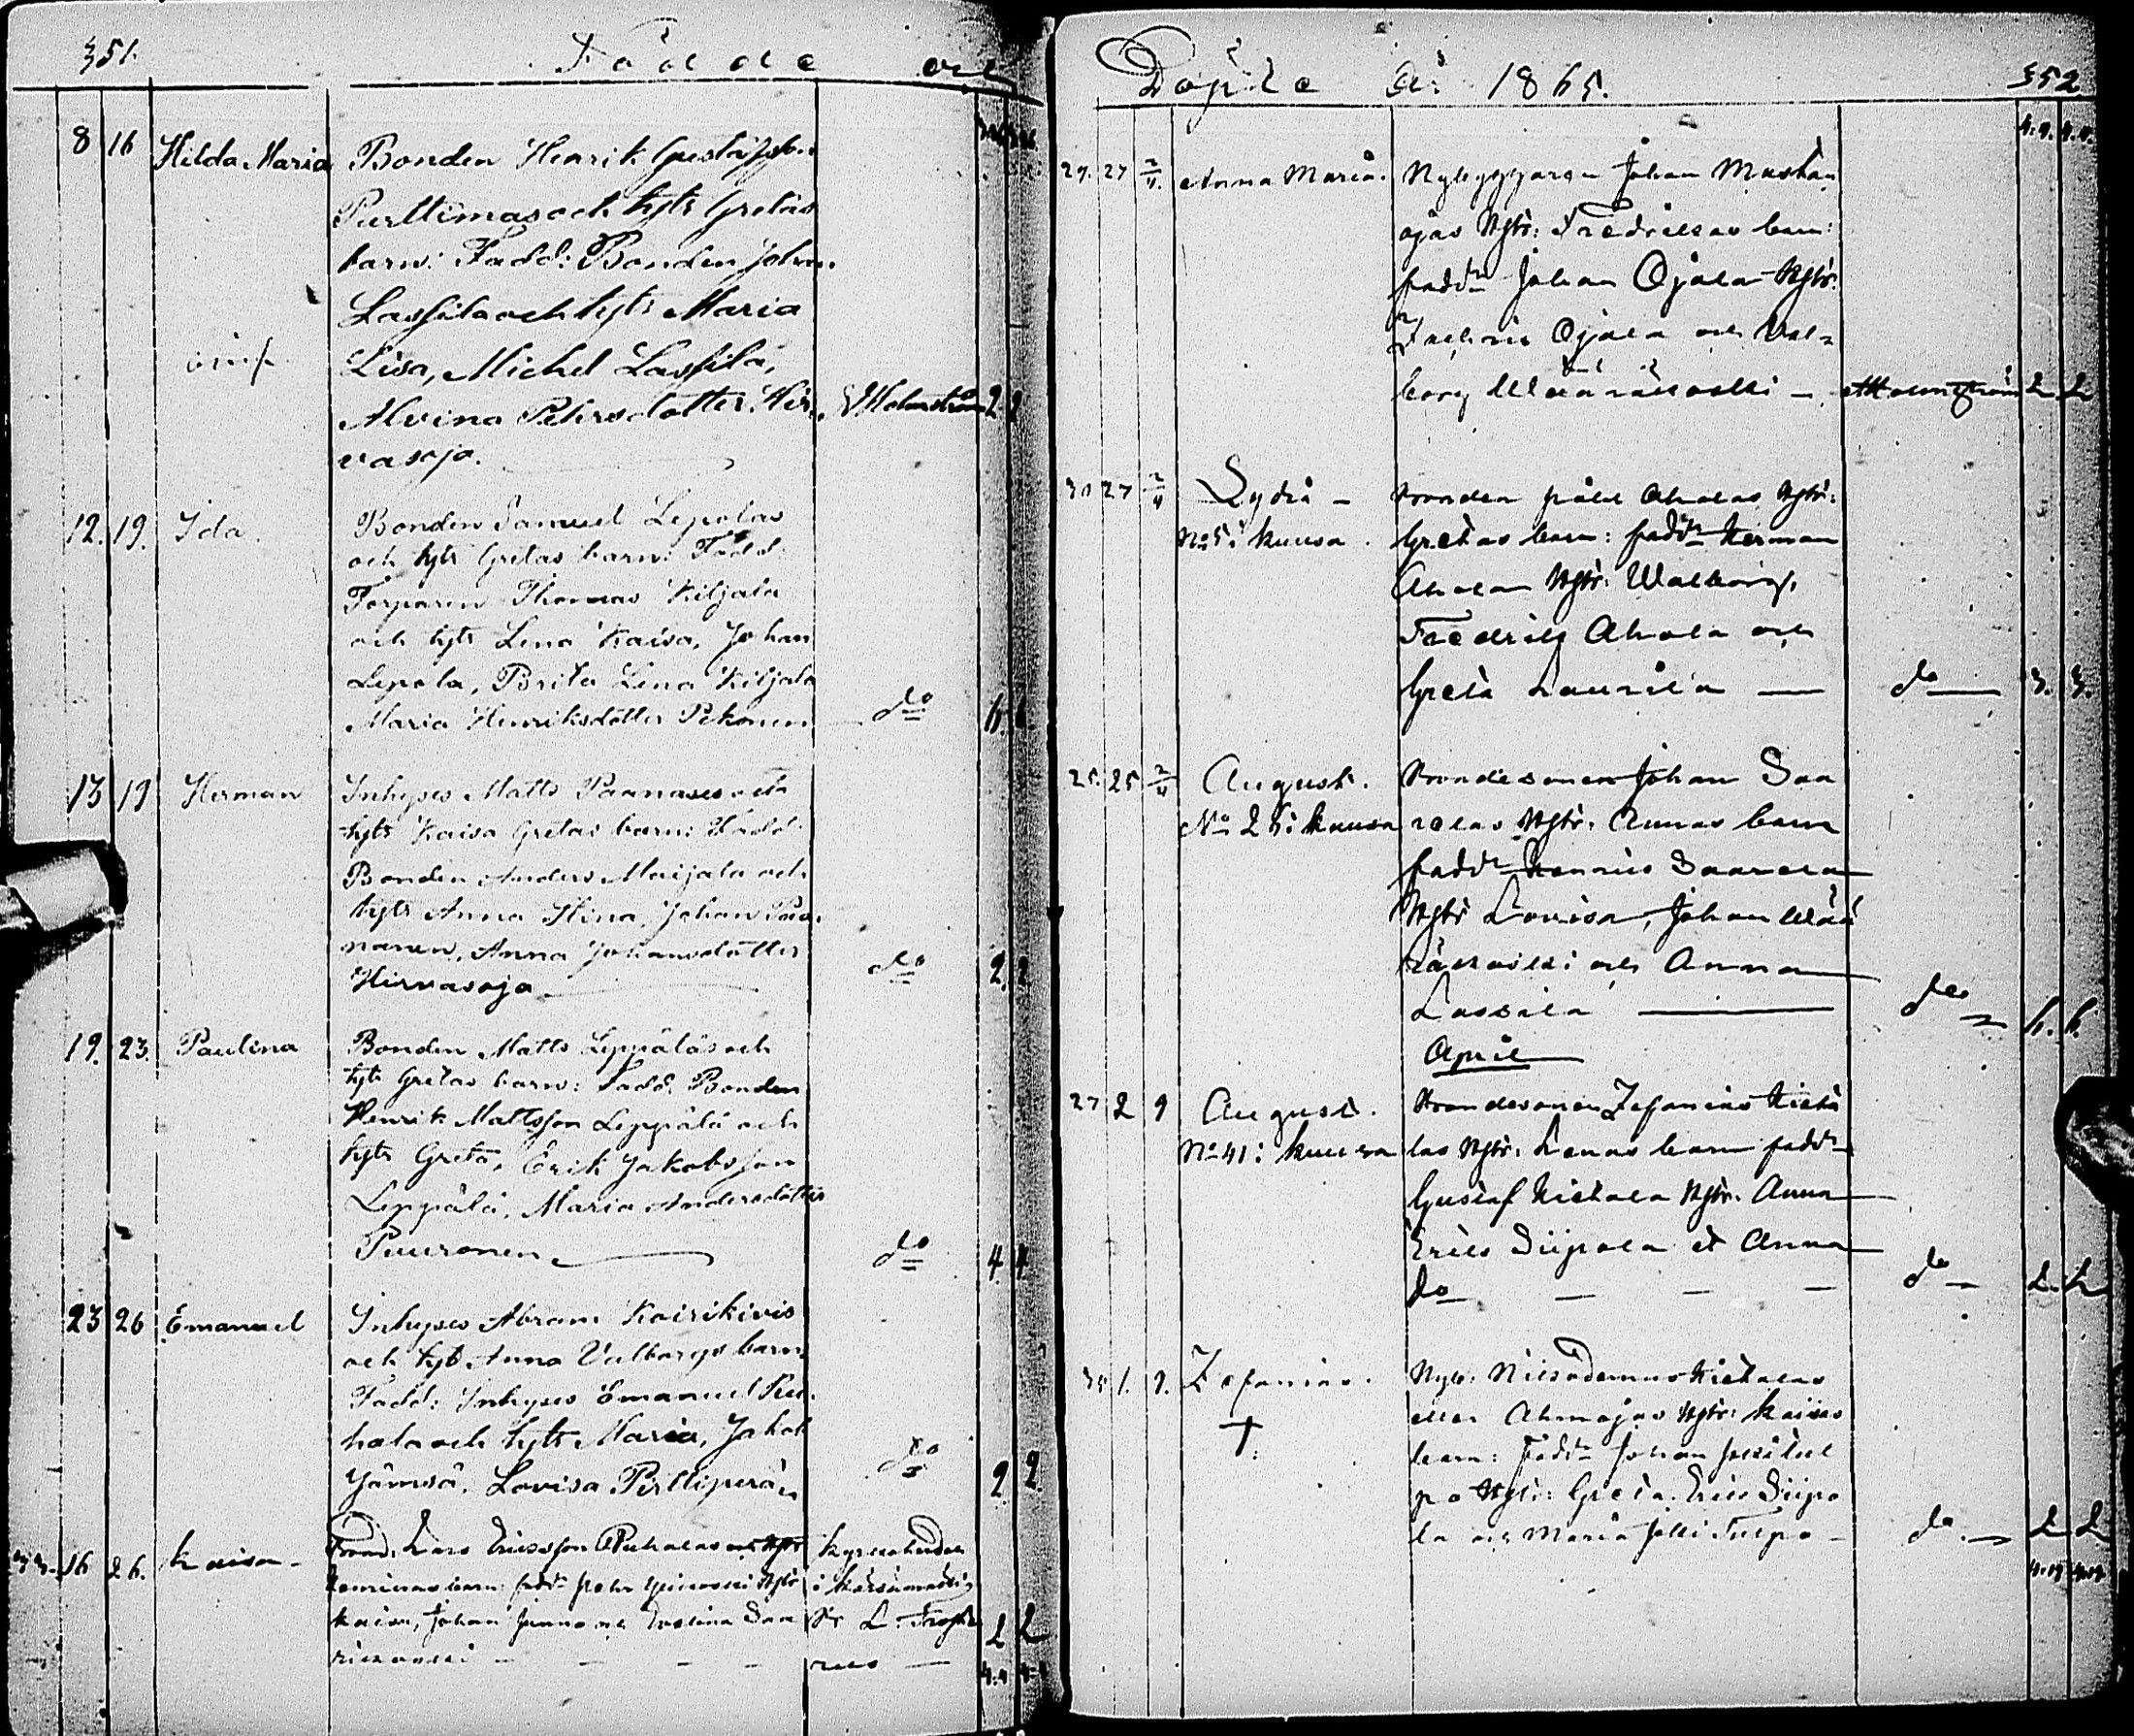 351.
Födde och
8 16 Hilda Maria Bonden Henrik Gustafsson
Purttimas och hstr Gretas
barn: Fadd: Bonden Johan
Lassila och hstr Maria
Lisa, Michel Lassila,
Alvina Pehrsdotter Hir- Holmström 2 2
vasoja.
12. 19. Ida. Bonden Samuel Lepolas
och hstr Gretas barn: Fadd:
Torparen Thomas Kiljala
och hstr Lena Kaisa, Johan
Lepola, Brita Lena Kiljala
Maria Henriksdotter Pekonen do 6.
13 19 Herman Inhyses Matts Paanases och
hstr Kaisa Gretas barn: Fadd:
Bonden Anders Maijala och
hstr Anna Stina, Johan Paa-
nanen, Anna Johansdotter
Hirvasoja do 2. 2
19. 23. Paulina Bonden Matts Leppäläs och
hstr Gretas barn: Fadd: Bonden
Henrik Mattsson Leppälä och
hstr Greta, Erik Jakobsson
Leppälä, Maria Andersdotter
Puuronen do 4 4
23 26 Emanuel Inhyses Abram Koirikivis
och hst Anna Valborgs barn:
Fadd: Inhyses Emanuel Ru-
hala och hstr Maria, Jakob
Jämsä, Lovisa Pirttiperä do 2 2
16 26. Kaisa - Lars Ericsson Kyrkoherden
barn: fadr Pehr i Kärsämäki
Kaisa, Johan Junno och Evelina Saa L. 2 2
Döpte År 1865. 352
29. 27 2/4. Anna Maria. Nybyggaren Johan Mustan
ojas Hstr: Fredrikas barn:
fadr Johan Ojala Hstr:
Ojala och Val-
borg Määräkoski - Holmström 2 2
30 27 2/4 Lydia - Bonden Påhl Aholas Hstr:
No 5: Kuusa. Gretas barn: fadr Herman
Ahola Hstr: Walborg,
Fredrik Ahola och
Greta Laurila do 3. 3.
25. 25 2/4 August. Bondesonen Johan Saa
No 25: Kuusa relas Hstr: Annas barn
fadr Henrik Saarela
Hstr Lovisa, Johan Mää
räkoski och Anna
Lassila do 6. 6.
April
27 2 9 August. Bondesonen Zefanias Kieta
No 41: Kuusa las Hstr: Lenas barn fadr
Gustaf Kietala Hstr: Anna
Erik Siipola et Anna
do - - - do 2. 2
1. 9. Zefanias. Nyb: Nikodemus Kietalas
† eller Ahmajas Hstr: Kaisas
barn: Fadr Johan
Hstr: Greta. Erik Siipo
la och Maria do. 2 2